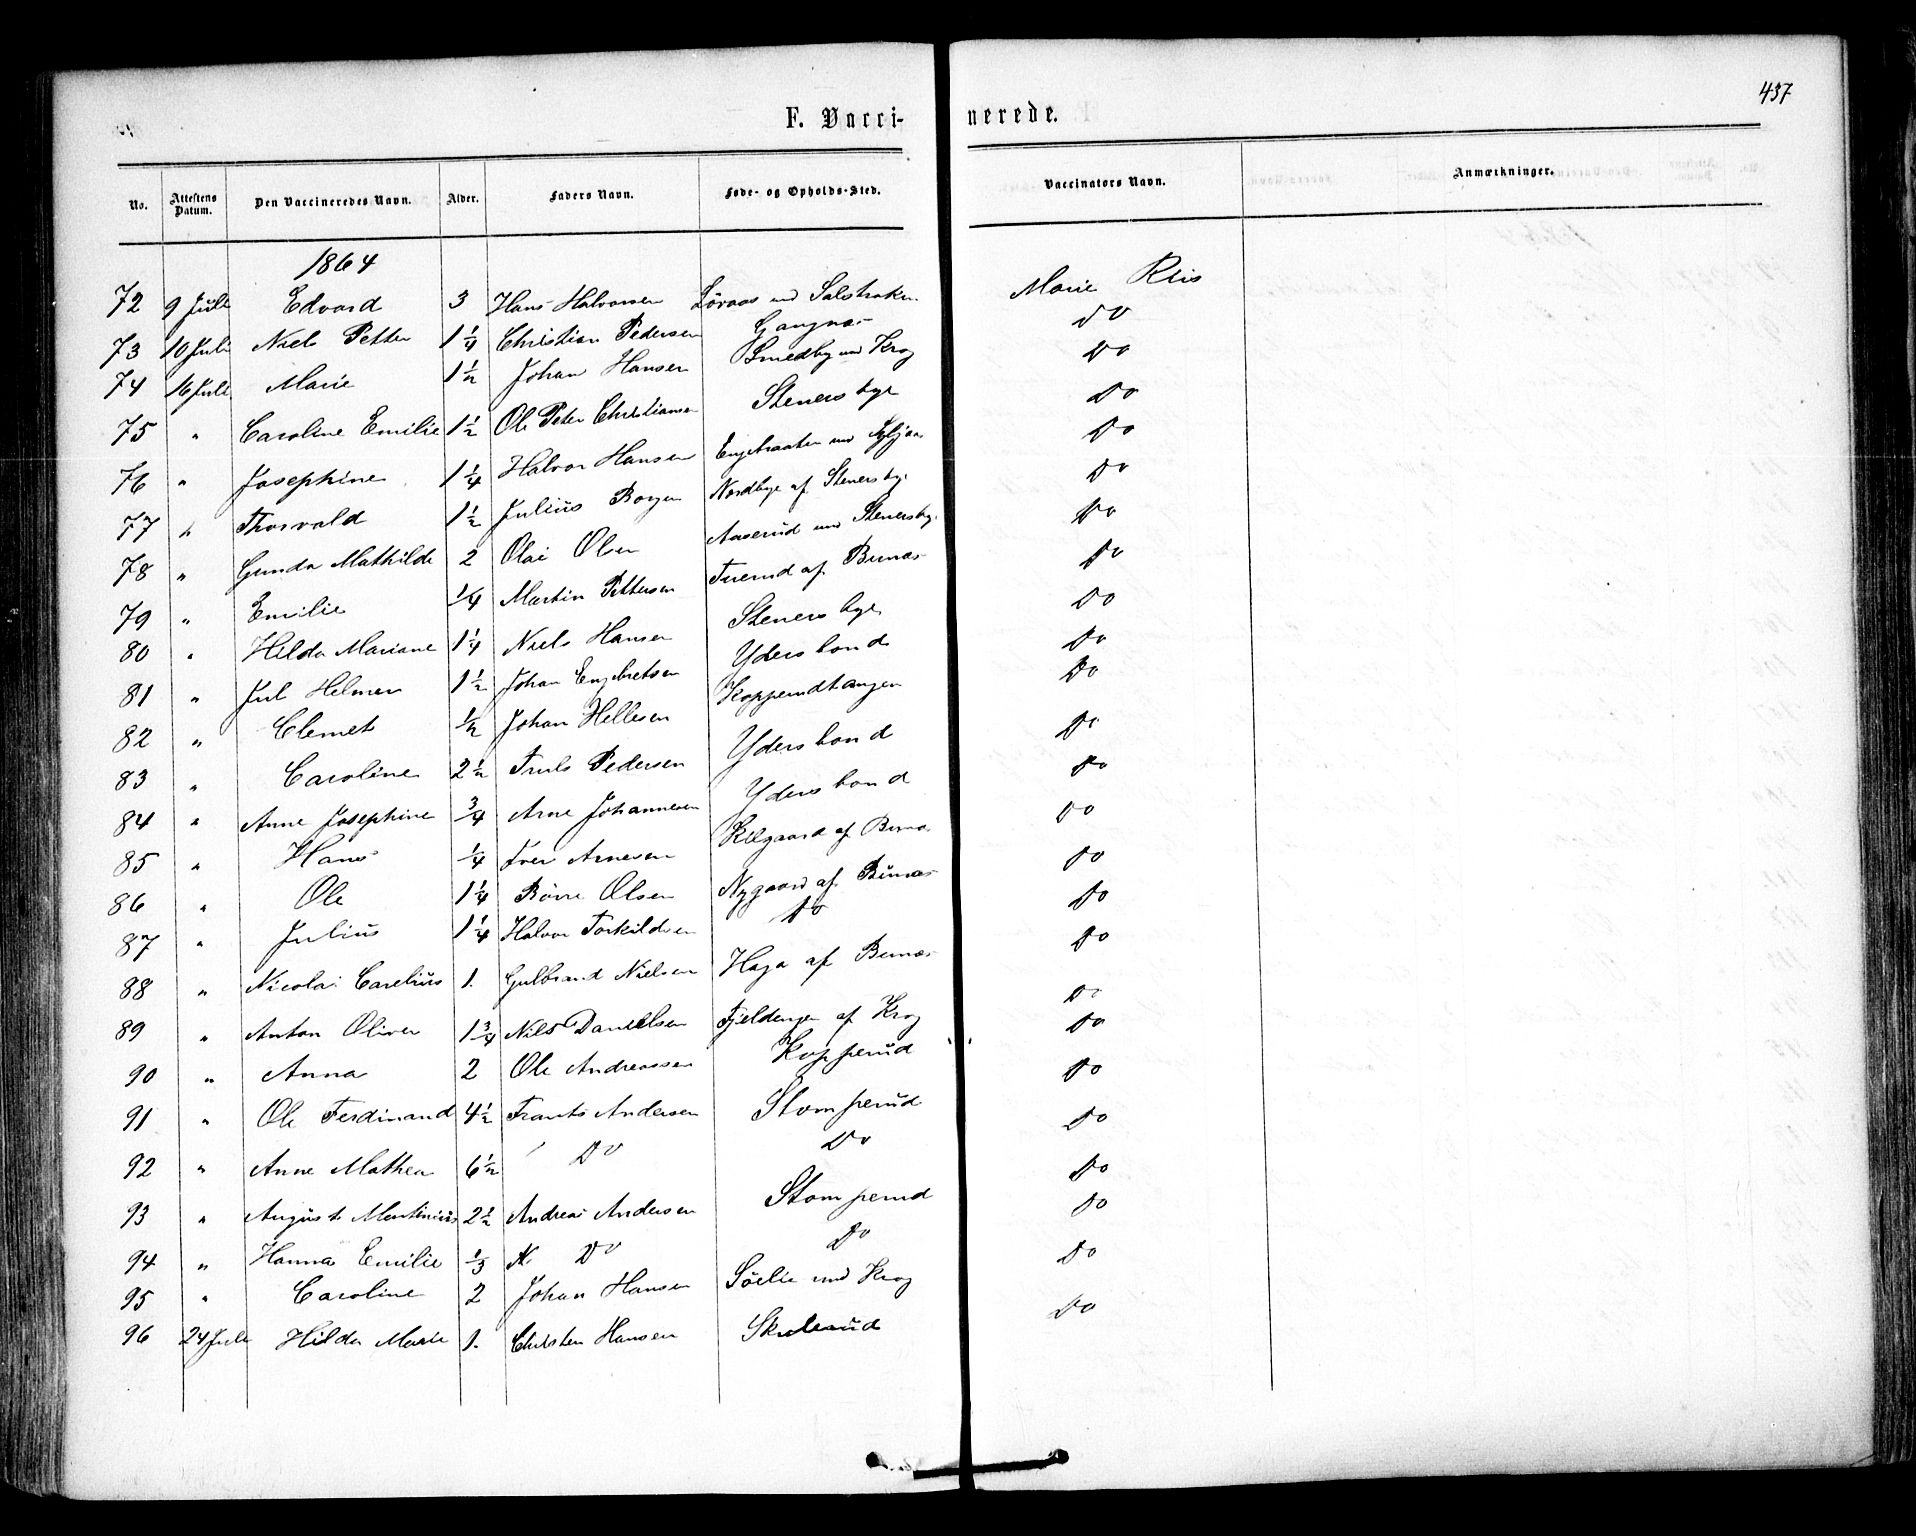 437
F. Vacci- nerede.
No. Attestens Datum. Den Vaccineredes Navn. Alder. Faders Navn. Føde- og Opholds-Sted. Vaccinators Navn. Anmærkninger.
1864
72 9 Juli Edvard 3 Hans Halvorsen Løvaas und Marie Riis
73 10 Juli Niels Petter 1 1/4 Christian Pedersen Gangnæs Do
74 16 Juli Marie 1 1/2 Johan Hansen Smedby und Krog Do
75 " Caroline Emilie 1 1/2 Ole Peter Christiansen Stenersbye Do
76 " Josephine 1 1/4 Halvor Hansen Engebraaten und Do
77 " Thorvald 1 1/2 Julius Borgen Nordbye af Stenersby Do
78 " Gunda Mathilde 2 Olai Olsen Aaserud und Stenersby Do
79 " Emilie 1/4 Martin Pettersen Tuerud af Bunæs Do
80 " Hilda Mariane 1 1/4 Niels Hansen Stenersbye Do
81 " Jul Helmer 1 1/2 Johan Engebretsen Ydersbond Do
82 " Clemet 1/2 Johan Hellesen Kopperudtangen Do
83 " Caroline 2 1/2 Truls Pedersen Ydersbond Do
84 " Anne Josephine 3/4 Arne Johannesen Ydersbond Do
85 " Hans 1/4 Iver Arnesen Kilgaard af Bunæs Do
86 " Ole 1 1/4 Børre Olsen Nygaard af Bunæs Do
87 " Julius 1 1/4 Halvor Torkildsen Do Do
88 " Nicolai Carelius 1. Gulbrand Nielsen Haga af Bunæs Do
89 " Anton Oliver 1 3/4 Nils Danielsen Fjeldengen af Krog Do
90 " Anna 2 Ole Andreassen Kopperud Do
91 " Ole Ferdinand 4 1/2 Frants Andersen Stomperud Do
92 " Anne Mathea 6 1/2 Do Do Do
93 " August Martinius 2 1/2 Andreas Andersen Stomperud Do
94 " Hanna Emilie 1/3 Do Do Do
95 " Caroline 2 Johan Hansen Sölie und Krog Do
96 24 Juli Hilda Marie 1. Christen Hansen Skulerud Do